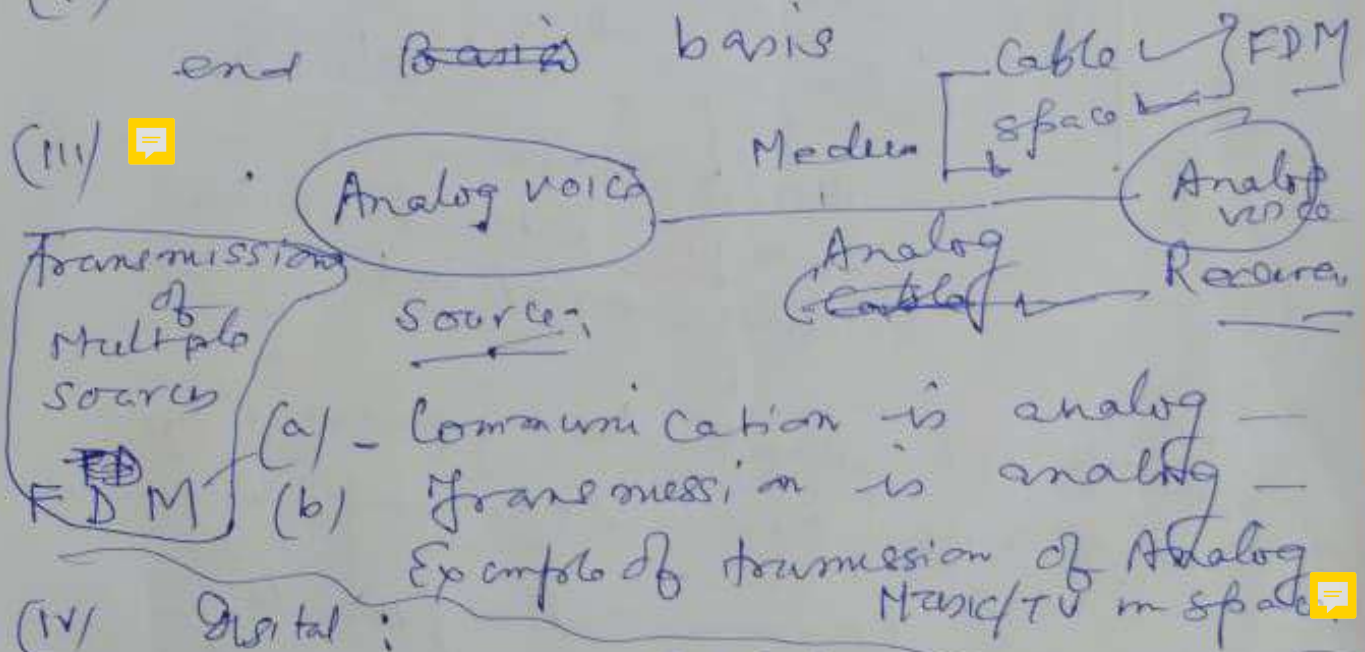 end basis
Cable
FDM
space
(III)
Medium
Analog voice
Analog
Analog
Receiver
Source
transmission
of
Multiple
sources
FDM
(a) - Communication is analog —
(b) Transmession is analog —
Example of transmession of Analog
Music/TV in space
(IV) Digital :